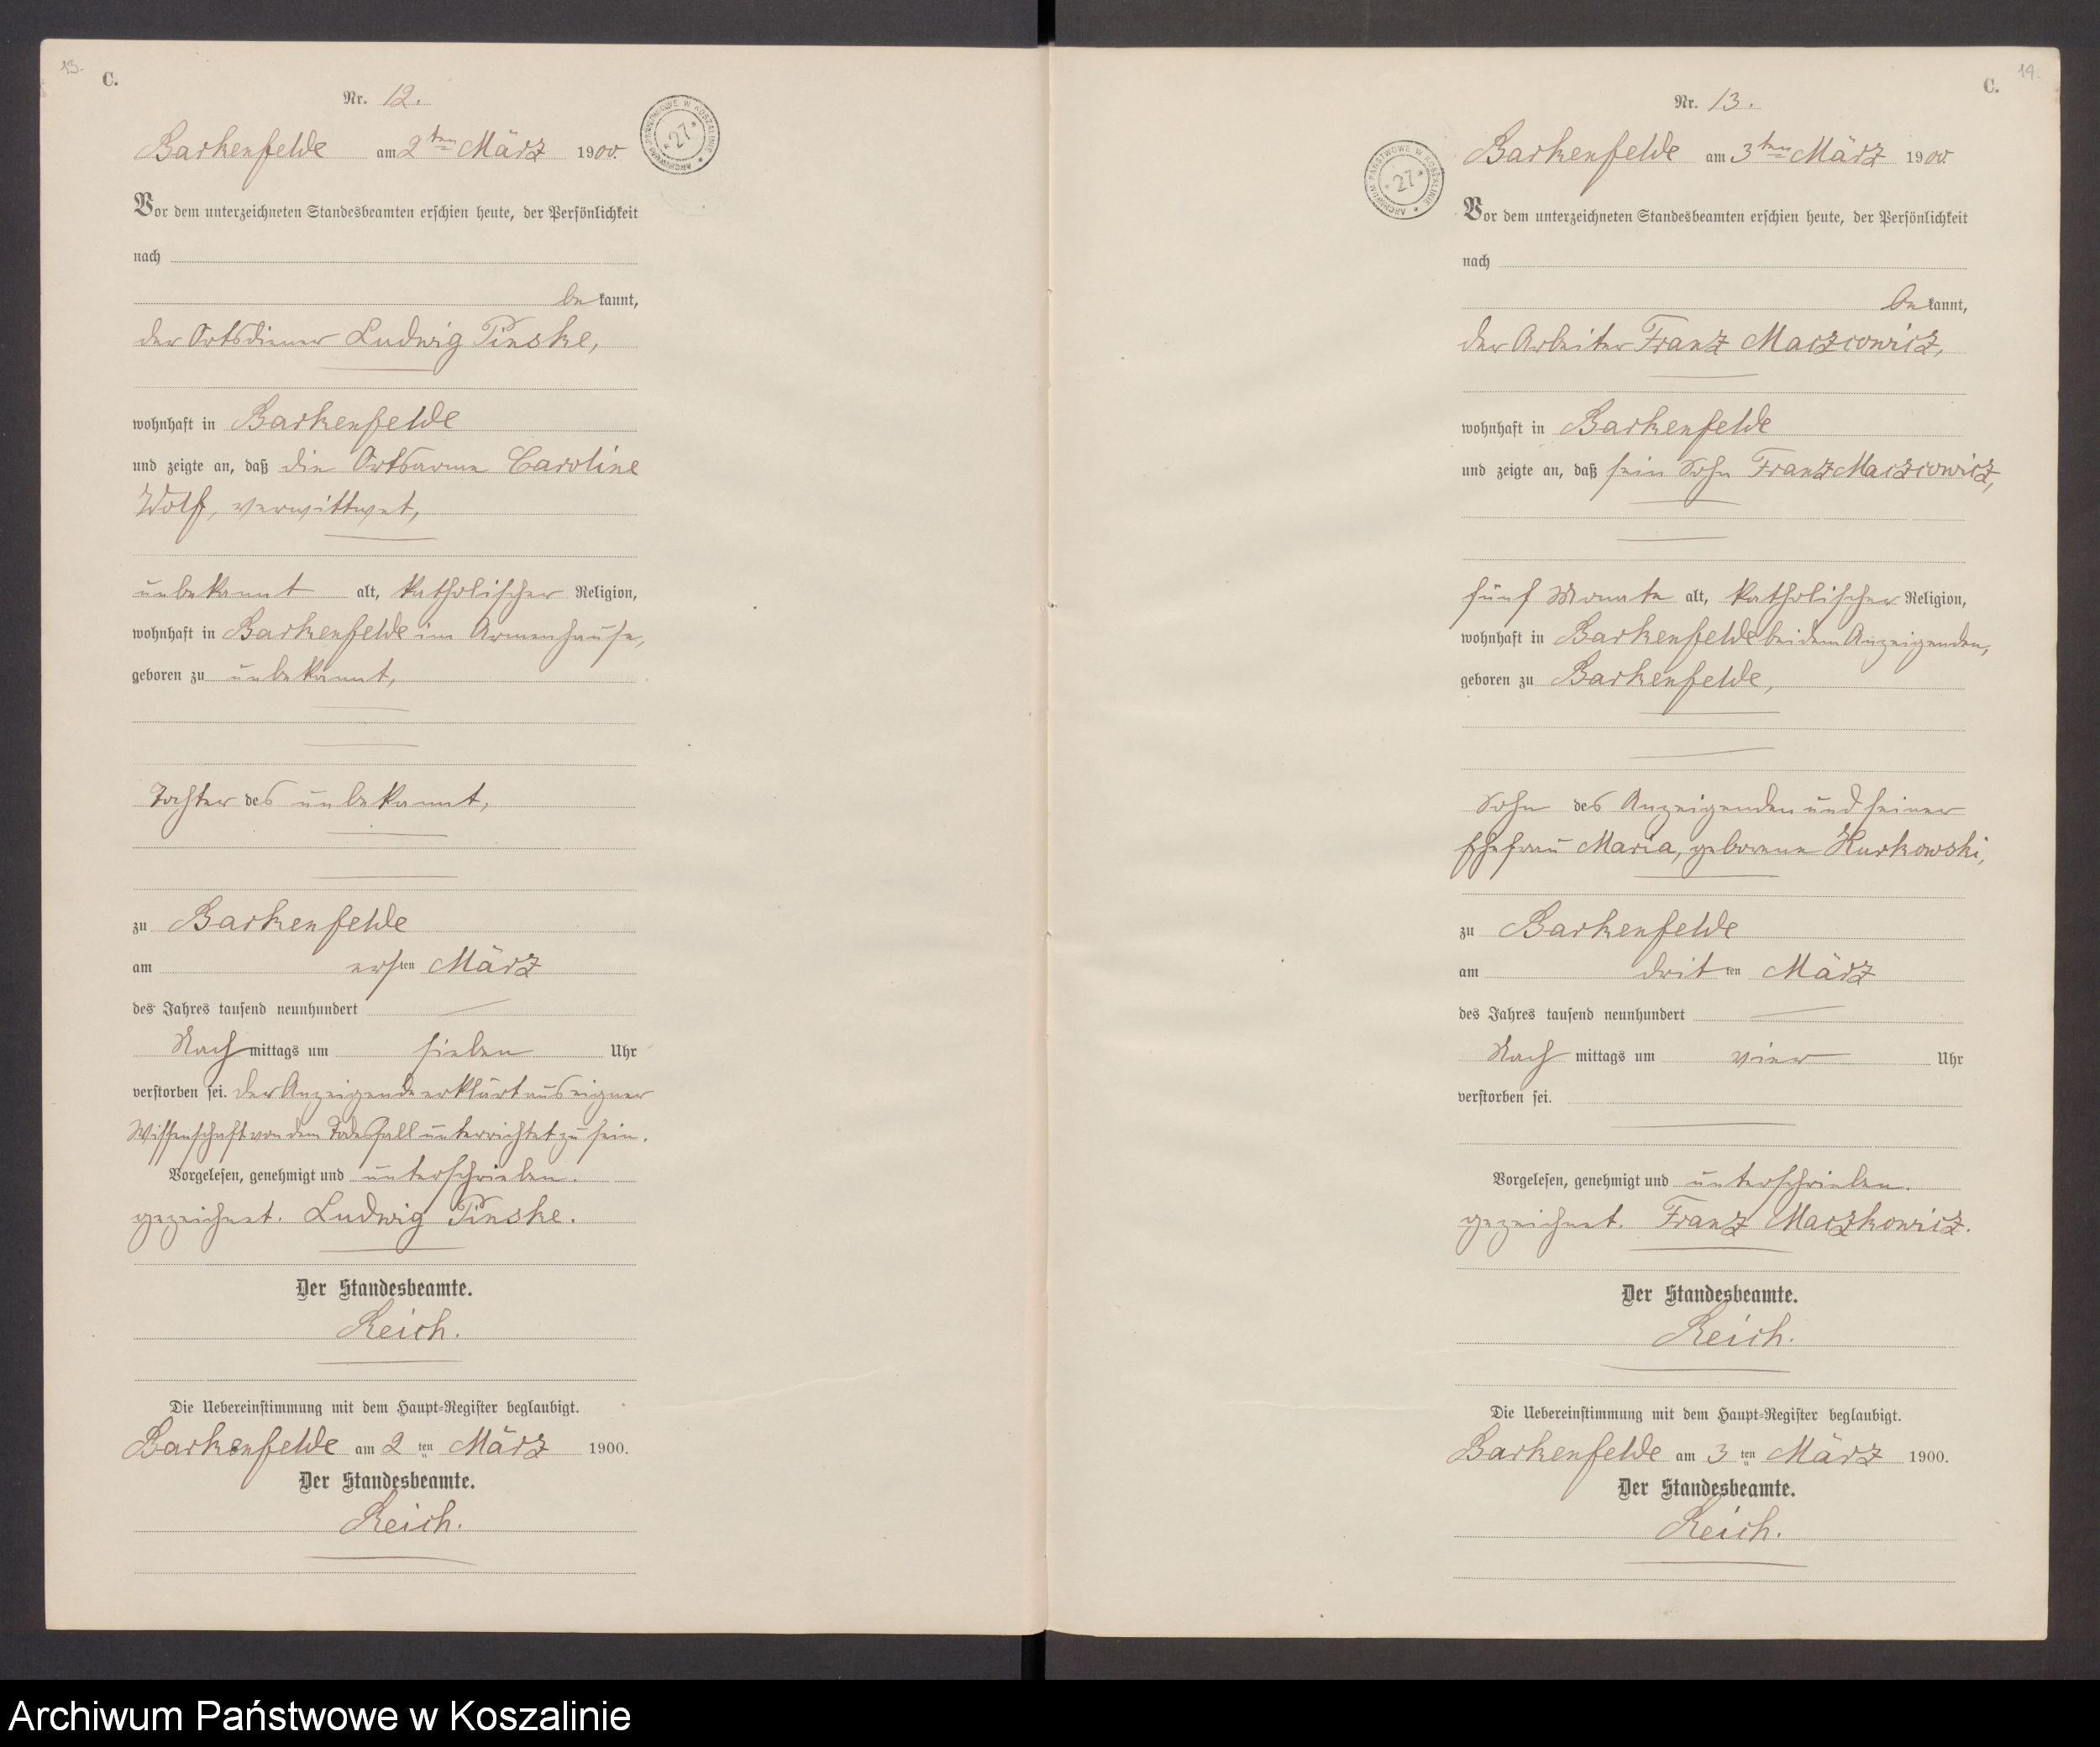 13.
C.
Nr. 12.
Barkenfelde am 2ten März 1900.
ARCHIWUM PAŃSTWOWE W KOSZALINIE * 27 *
Vor dem unterzeichneten Standesbeamten erschien heute, der Persönlichkeit
nach
be kannt,
der Ortsdiener Ludwig Pinske,
wohnhaft in Barkenfelde
und zeigte an, daß die Ortsarme Caroline
Wolf, verwittwet,
unbekannt alt, katholischer Religion,
wohnhaft in Barkenfelde im Armenhause,
geboren zu unbekannt,
Tochter des unbekannt,
zu Barkenfelde
am ersten März
des Jahres tausend neunhundert
Nachmittags um sieben Uhr
verstorben sei. Der Anzeigende erklärt aus eigner
Wissenschaft von dem Todesfall unterrichtet zu sein.
Vorgelesen, genehmigt und unterschrieben.
gezeichnet. Ludwig Pinske.
Der Standesbeamte.
Reich.
Die Uebereinstimmung mit dem Haupt-Register beglaubigt.
Barkenfelde am 2ten März 1900.
Der Standesbeamte.
Reich.
14.
C.
Nr. 13.
Barkenfelde am 3ten März 1900.
ARCHIWUM PAŃSTWOWE W KOSZALINIE * 27 *
Vor dem unterzeichneten Standesbeamten erschien heute, der Persönlichkeit
nach
be kannt,
der Arbeiter Franz Maczcowicz,
wohnhaft in Barkenfelde
und zeigte an, daß sein Sohn Franz Maczcowicz,
fünf Monate alt, katholischer Religion,
wohnhaft in Barkenfelde bei dem Anzeigenden,
geboren zu Barkenfelde,
Sohn des Anzeigenden und seiner
Ehefrau Maria, geborene Kurkowski,
zu Barkenfelde
am dritten März
des Jahres tausend neunhundert
Nachmittags um vier Uhr
verstorben sei.
Vorgelesen, genehmigt und unterschrieben.
gezeichnet. Franz Maczkowicz.
Der Standesbeamte.
Reich.
Die Uebereinstimmung mit dem Haupt-Register beglaubigt.
Barkenfelde am 3ten März 1900.
Der Standesbeamte.
Reich.
Archiwum Państwowe w Koszalinie